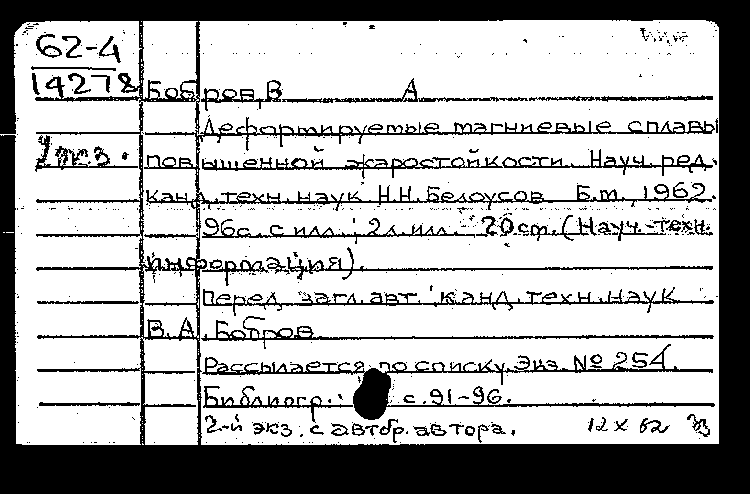 62-4
14278
Бобров, В А
Деформируемые магниевые сплавы
2 экз. повышенной жаростойкости. Науч. ред.
канд. техн. наук Н.Н. Белоусов Б.м., 1962.
96с. с илл.; 2 л. илл. 20 см. (Науч.-техн.
информация).
Перед загл. авт.: канд. техн. наук
В. А. Бобров
Рассылается по списку. Экз. № 254.
Библиогр.: с. 91-96.
2-й экз. с автогр. автора. 12 X 62